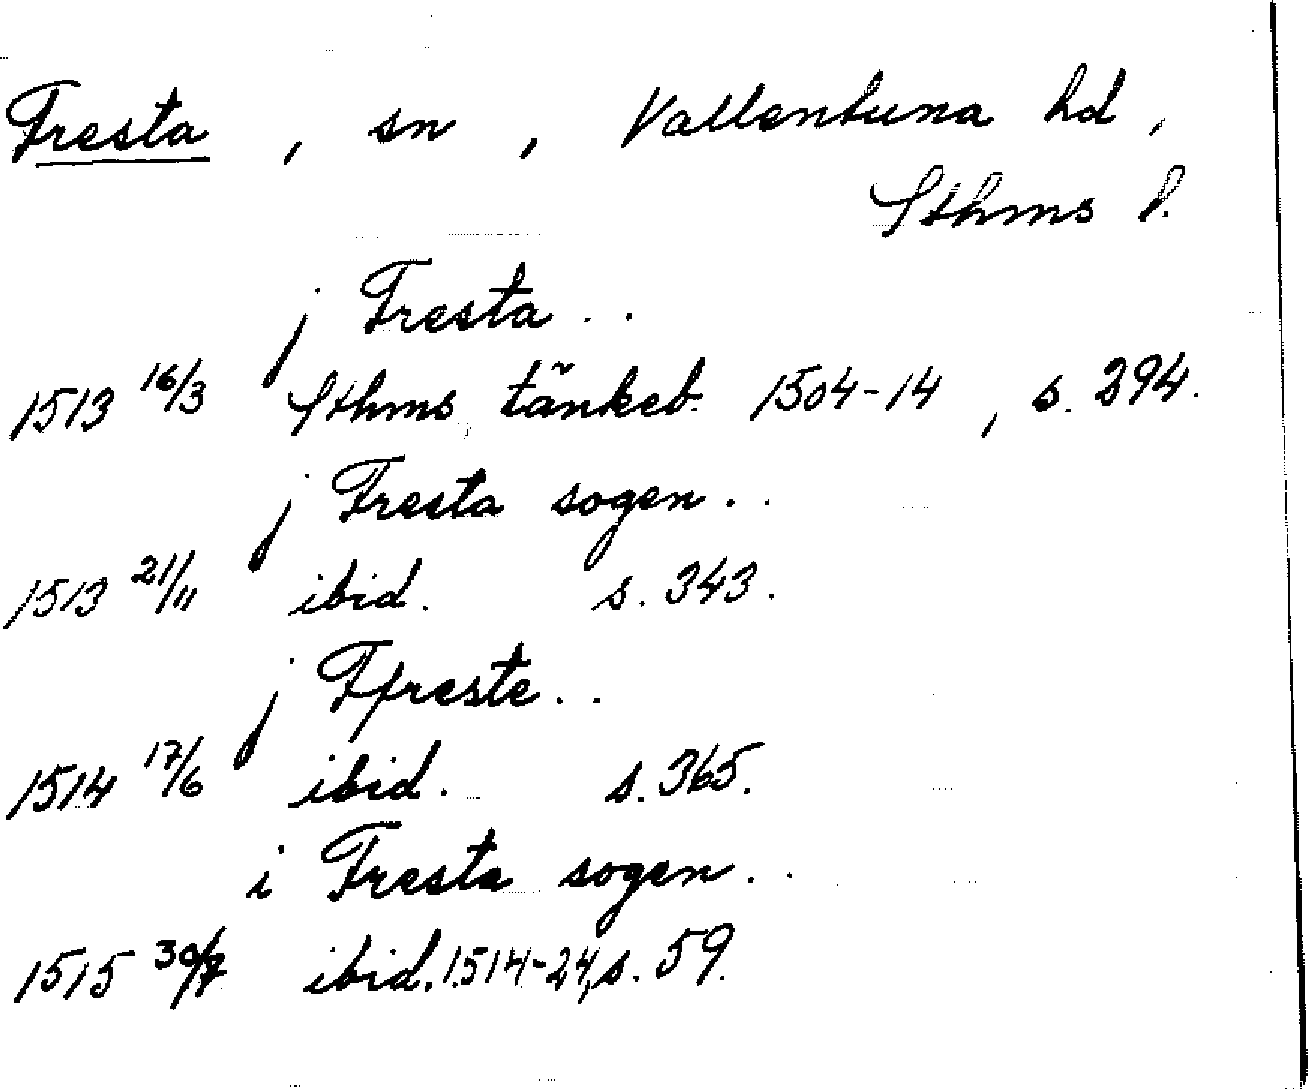 Fresta, sn, Vallentuna hd,
Sthms l.
j Fresta..
1513 16/3 Sthms tänkeb. 1504-14, s. 294.
j Fresta sogen..
1513 21/11 ibid. s. 343.
j Ffreste..
1514 17/6 ibid. s. 365.
i Fresta sogen..
1515 30/7 ibid. 1514-24, s. 59.